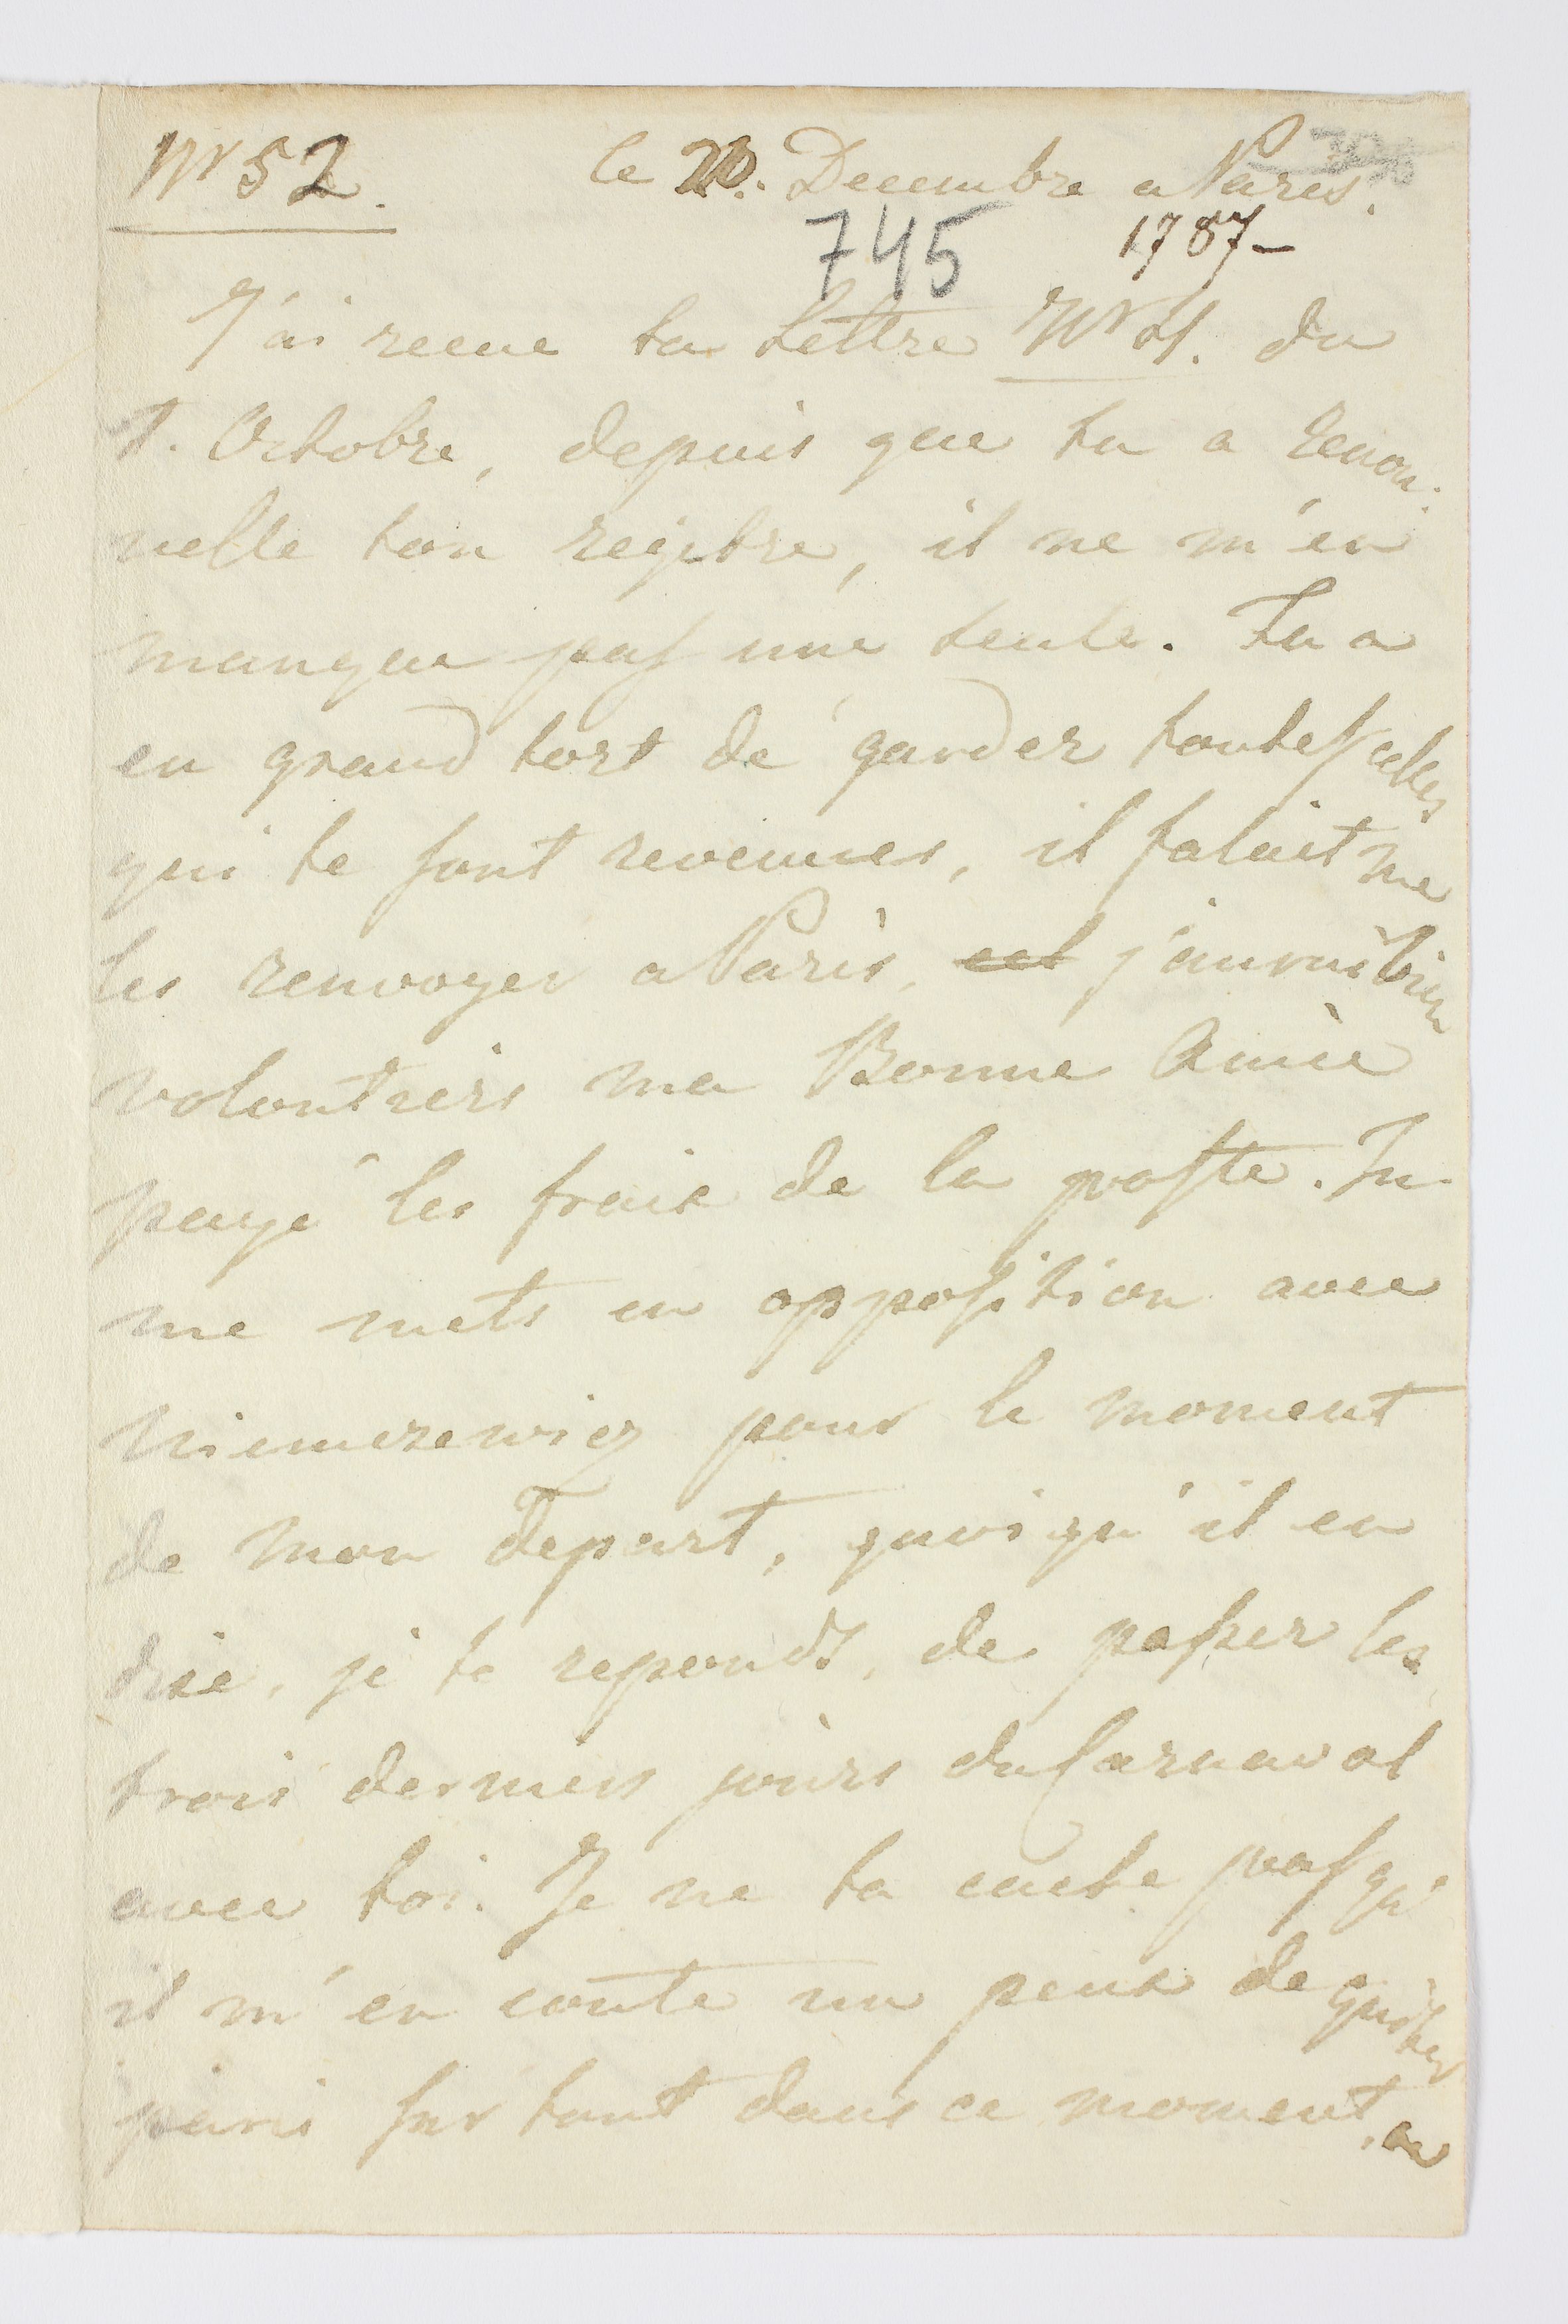 Nr 52. le 20. Decembre a Paris.
745 1787-
J'ai recue ta Lettre Nr 4. du
1. Octobre, depuis que tu a renou:
vellé ton rejistre, il ne m'en
manque pas une seule. Tu a
eu grand tort de garder toutes celles
qui te sont revenues, il falait me
les renvoyer a Paris, j'aurais bien
volontiers ma Bonne Amie
payé les frais de la poste. Tu
me mets en opposition avec
Niemcrewicz pour le moment
de mon Depart, quoiqu'il en
dise, je te reponds, de passer les
trois derniers jours du Carnaval
avec toi. Je ne te cache pas qu'
il m'en coute un peux de quitter
paris sur tout dans ce moment, ou